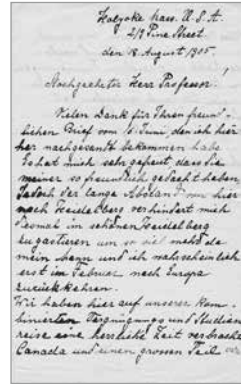 Holyoke Mass. U.S.A.
219 Pine Street.
den 18. August 1905.
Hochgeehrter Herr Professor!
Vielen Dank für Ihren freund-
lichen Brief vom Juni den ich hier
her nachgesandt bekommen habe
Es hat mich sehr gefreut dass Sie
meiner so freundlich gedacht haben
Jedoch der lange Abstand von hier
nach Heidelberg verhindert mich
diesmal im schönen Heidelberg
zu gastieren um so viel mehr da
mein Mann und ich wahrscheinlich
erst im Februar nach Europa
zurückkehren.
Wir haben hier auf unserer Kom-
binierten Vergnügungs und Studien
reise eine herrliche Zeit verbracht
Canada und einen grossen Teil